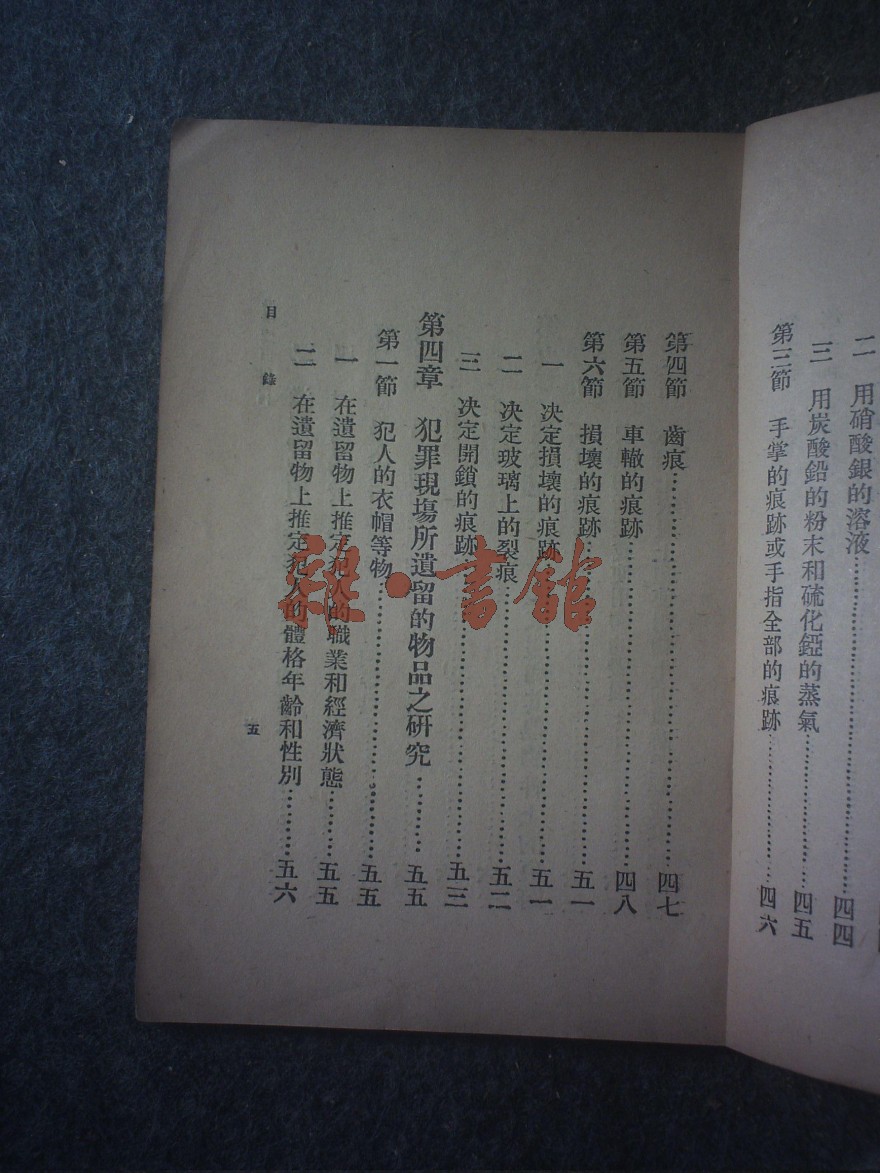 二　用硝酸銀的溶液……四四
三　用炭酸鉛的粉末和硫化錏的蒸氣……四五
第三節　手掌的痕跡或手指全部的痕跡……四六
第四節　齒痕……四七
第五節　車轍的痕跡……四八
第六節　損壞的痕跡……五一
一　決定損壞的痕跡……五一
二　決定玻璃上的裂痕……五二
三　決定開鎖的痕跡……五三
第四章　犯罪現場所遺留的物品之研究……五五
第一節　犯人的衣帽等物……五五
一　在遺留物上推定犯人的職業和經濟狀態……五五
二　在遺留物上推定犯人的體格年齡和性別……五六
目錄
五
雜·書館